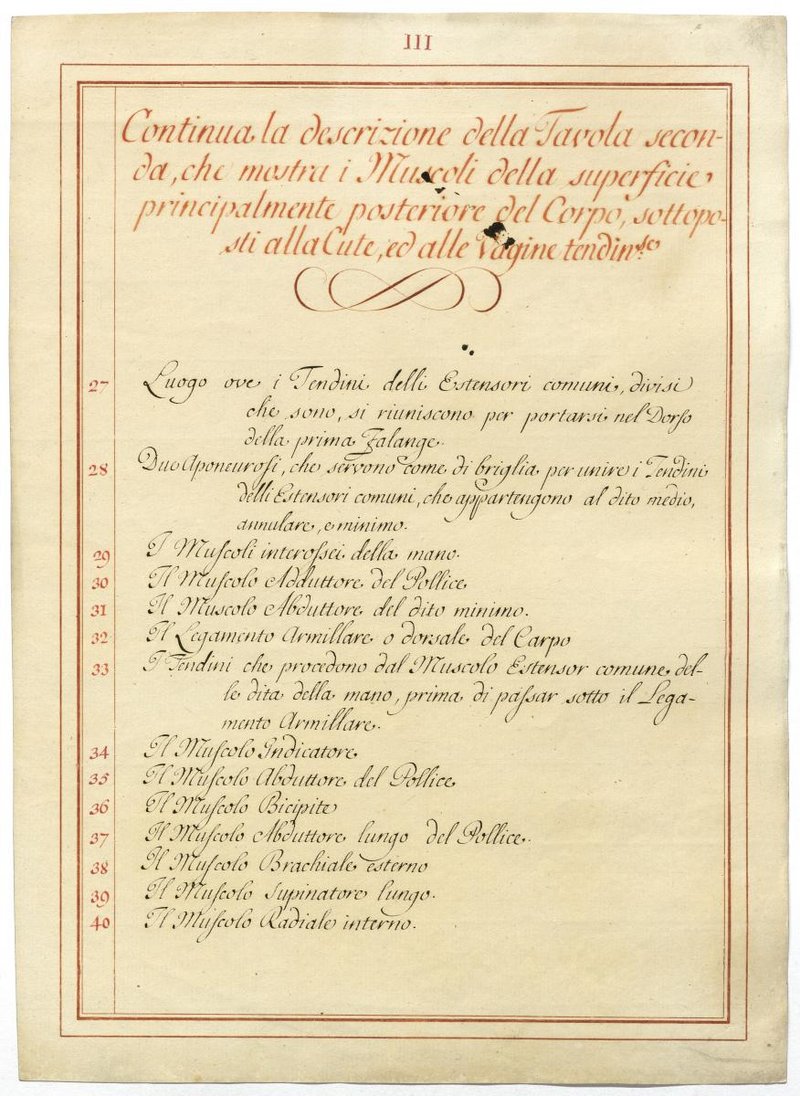 III
Continua la descrizione della Tavola secon-
da, che mostra i Muscoli della superficie
principalmente posteriore del Corpo, sottopo-
sti alla Cute, ed alle Vagine tendin.se
27 Luogo ove i Tendini delli Estensori comuni, divisi
che sono, si riuniscono per portarsi nel Dorso
della prima Falange.
28 Due Aponeurosi, che servono come di briglia per unire i Tendini
delli Estensori comuni, che appartengono al dito medio,
annulare, e minimo.
29 I Muscoli interossei della mano.
30 Il Muscolo Adduttore del Pollice
31 Il Muscolo Abduttore del dito minimo.
32 Il Legamento Armillare o dorsale del Carpo
33 I Tendini che procedono dal Muscolo Estensor comune del-
le dita della mano, prima di passar sotto il Lega-
mento Armillare.
34 Il Muscolo Indicatore
35 Il Muscolo Abduttore del Pollice
36 Il Muscolo Bicipite
37 Il Muscolo Abduttore lungo del Pollice.
38 Il Muscolo Brachiale esterno
39 Il Muscolo Supinatore lungo.
40 Il Muscolo Radiale interno.